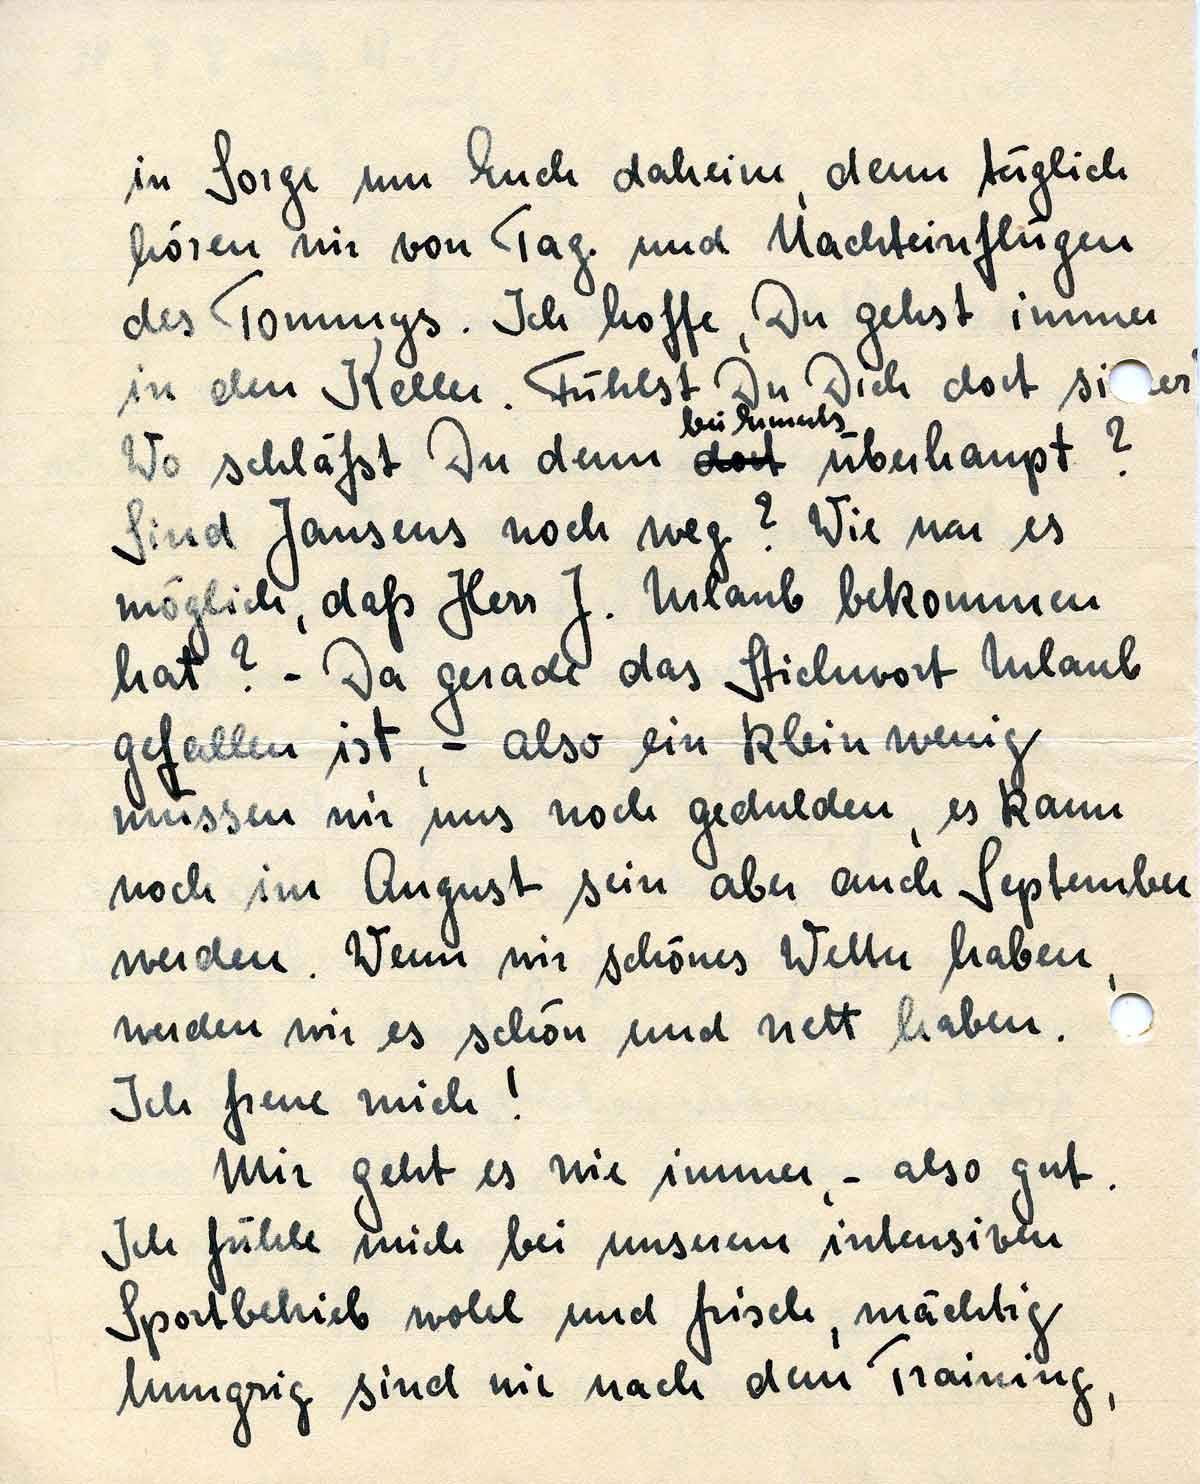 in Sorge um Euch daheim, denn täglich
hören wir von Tag- und Nachteinflügen
des Tommys. Ich hoffe, Du gehst immer
in den Keller. Fühlst Du Dich dort sicher?
bei
Wo schläfst Du denn dort überhaupt?
Sind Jansens noch weg? Wie war es
möglich, daß Herr J. Urlaub bekommen
hat? - Da gerade das Stichwort Urlaub
gefallen ist, - also ein klein wenig
müssen wir uns noch gedulden, es kann
noch im August sein aber auch September
werden. Wenn wir schönes Wetter haben,
werden wir es schön und nett haben.
Ich freue mich!
Mir geht es wie immer, - also gut.
Ich fühle mich bei unserem intensiven
Sportbetrieb wohl und frisch, mächtig
hungrig sind wir nach dem Training,